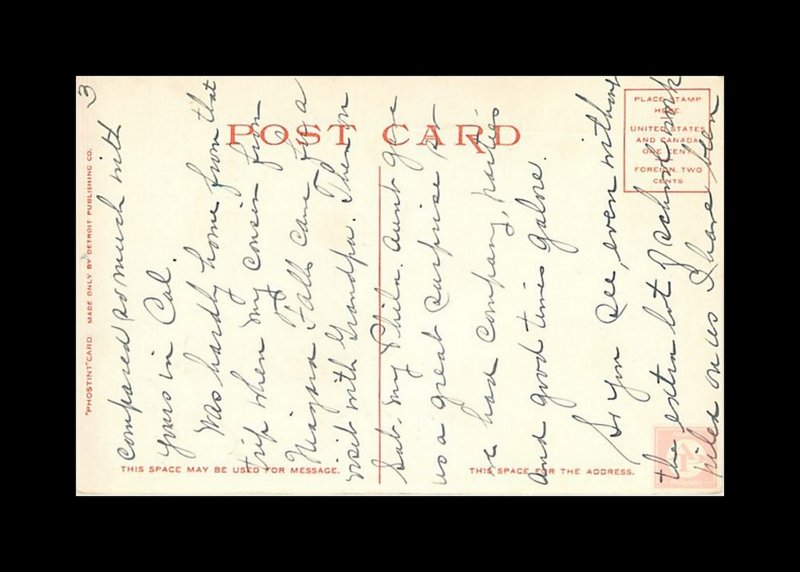 3
compared so much with
yours in Cal.
Was hardly home from that
trip when my cousin from
Niagara Falls came for a
visit with Grandpa. Then on
Sat. my Phila. Aunt gave
us a great surprise so
we had company, parties
and good times galore.
So you see, even without
the extra lot of school work
piled on us I have been
POST CARD
PLACE STAMP
HERE
UNITED STATES
AND CANADA
ONE CENT
FOREIGN, TWO
CENTS
"PHOSTINT" CARD. MADE ONLY BY DETROIT PUBLISHING CO.
THIS SPACE MAY BE USED FOR MESSAGE.
THIS SPACE FOR THE ADDRESS.